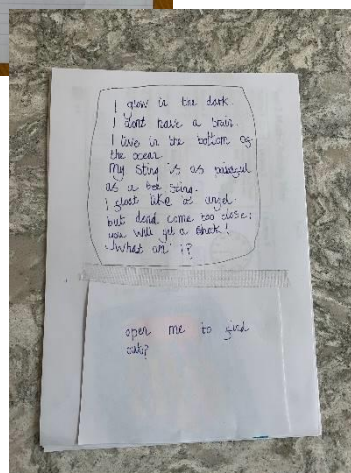 I grow in the dark.
I dont have a brain.
I live in the bottom of
the ocean
My sting is as painful
as a bee sting.
I float like a angel
but dond come too close;
you will get a shock!
What am i?
open me to find
out?